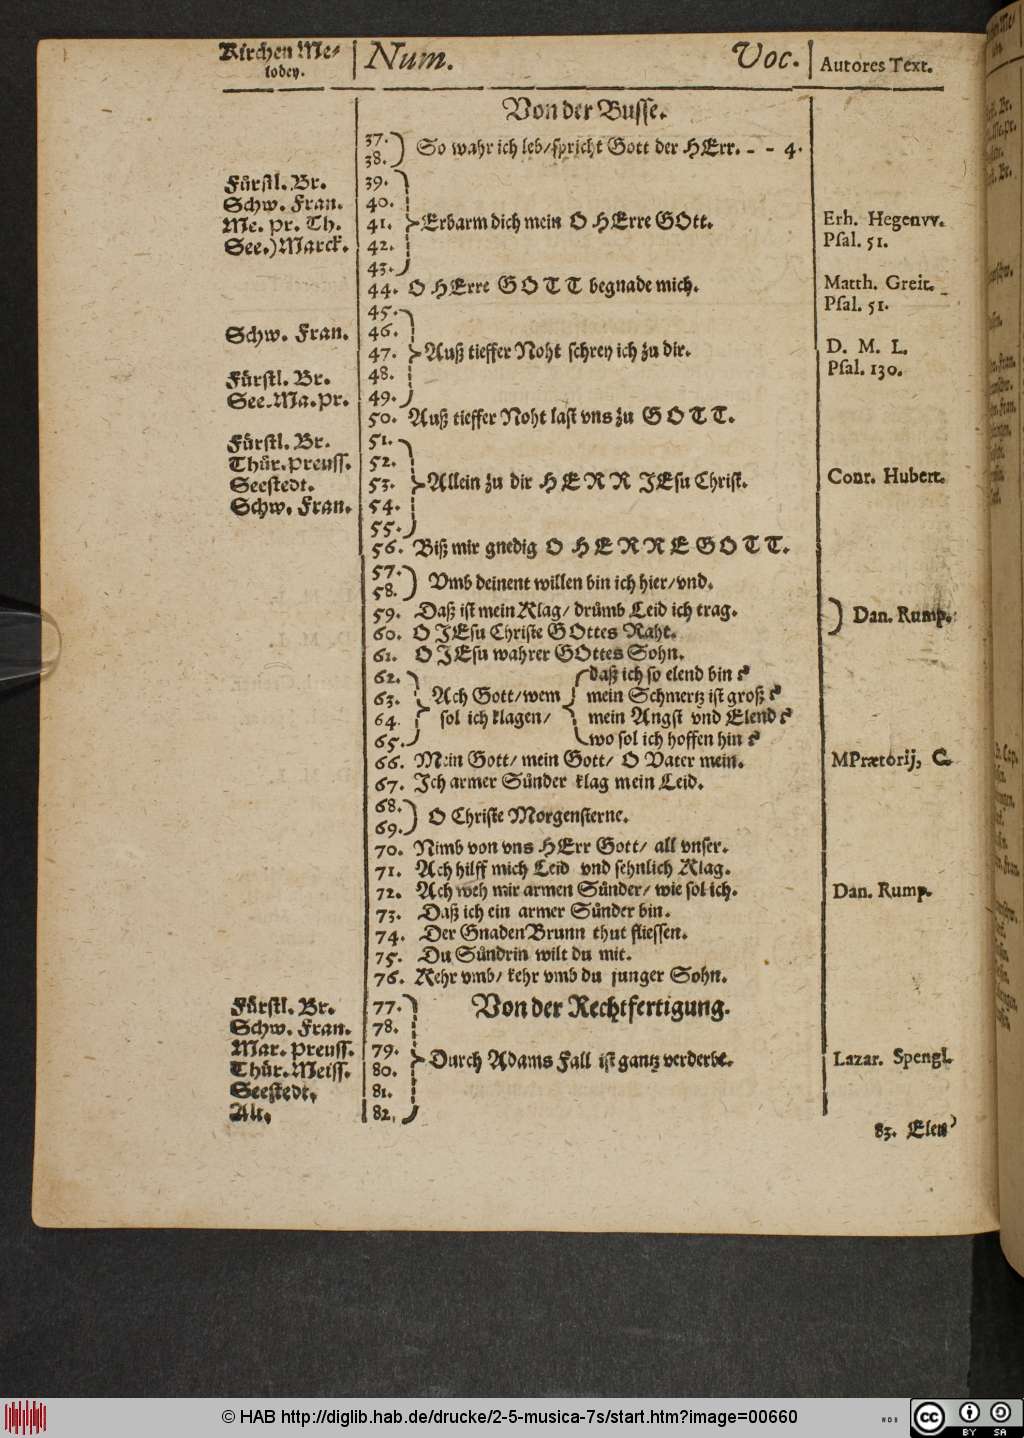 Kirchen Me- Num. Voc. Autores Text.
lodey.
Von der Busse.
37.
38. So wahr ich leb/ spricht Gott der HErr. - - 4.
Fürstl. Br. 39.
Schw. Fran. 40.
Me. pr. Th. 41. Erbarm dich mein O HErre GOtt. Erh. Hegenvv.
See.) Marck. 42. Psal. 51.
43.
44. O HErre GOTT begnade mich. Matth. Greit.
45. Psal. 51.
Schw. Fran. 46.
47. Auß tieffer Noht schrey ich zu dir. D. M. L.
Fürstl. Br. 48. Psal. 130.
See. Ma. pr. 49.
50. Auß tieffer Noht last vns zu GOTT.
Fürstl. Br. 51.
Thür. preuss. 52.
Seestedt. 53. Allein zu dir HERR JEsu Christ. Conr. Hubert.
Schw. Fran. 54.
55.
56. Biß mir gnedig O HERRE GOTT.
57.
58. Vmb deinent willen bin ich hier/ vnd.
59. Daß ist mein Klag/ drümb Leid ich trag. Dan. Rump.
60. O JEsu Christe GOttes Raht.
61. O JEsu wahrer GOttes Sohn.
62. daß ich so elend bin ?
63. Ach Gott/ wem mein Schmertz ist groß ?
64. sol ich klagen/ mein Angst vnd Elend ?
65. wo sol ich hoffen hin ?
66. Mein Gott/ mein Gott/ O Vater mein. MPrætorij, C.
67. Ich armer Sünder klag mein Leid.
68.
69. O Christe Morgensterne.
70. Nimb von vns HErr Gott/ all vnser.
71. Ach hilff mich Leid vnd sehnlich Klag.
72. Ach weh mir armen Sünder/ wie sol ich. Dan. Rump.
73. Daß ich ein armer Sünder bin.
74. Der GnadenBrunn thut fliessen.
75. Du Sündrin wilt du mit.
76. Kehr vmb/ kehr vmb du junger Sohn.
Fürstl. Br. 77. Von der Rechtfertigung.
Schw. Fran. 78.
Mar. Preuss. 79.
Thür. Meiss. 80. Durch Adams Fall ist gantz verderbt. Lazar. Spengl.
Seestedt. 81.
Alt. 82.
83. Elen
© HAB http://diglib.hab.de/drucke/2-5-musica-7s/start.htm?image=00660
cc BY SA